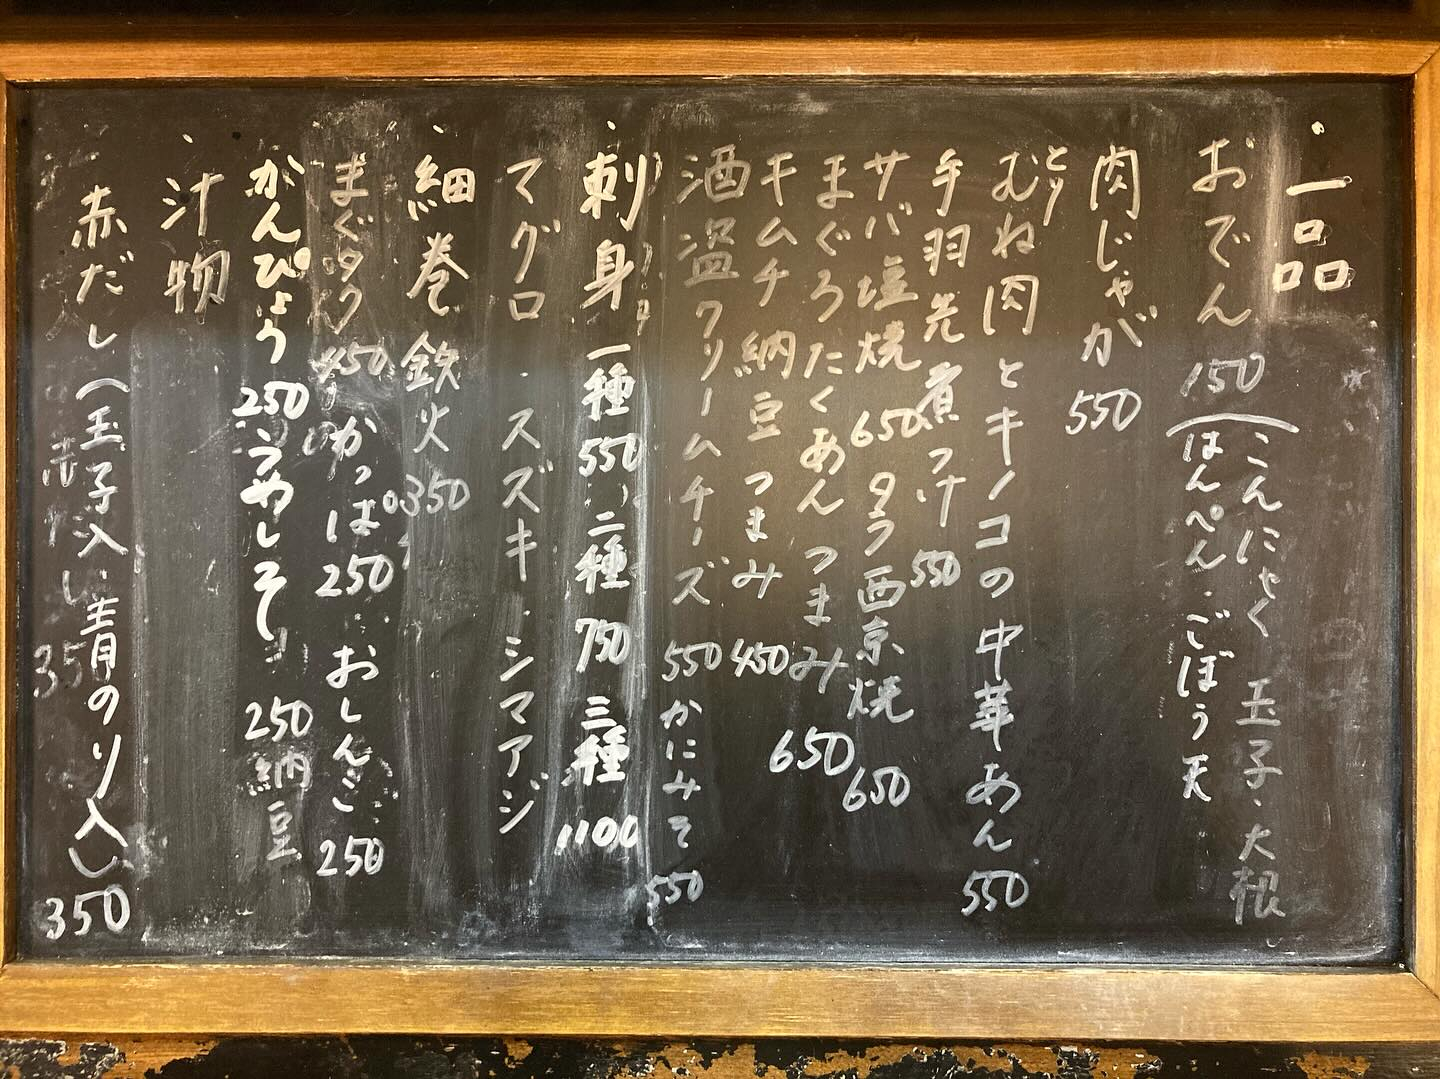 ・一品
おでん 150(こんにゃく 玉子・大根
はんぺん・ごぼう天
肉じゃが 550
とりむね肉とキノコの中華あん 550
手羽先煮つけ 550
サバ塩焼 650 タラ西京焼 650
まぐろたくあんつまみ 650
キムチ納豆つまみ 450
酒盗クリームチーズ 550 かにみそ 550
・刺身 一種550、二種750 三種1100
マグロ・スズキ・シマアジ
・細巻 鉄火350
まぐタク450 かっぱ250・おしんこ250
かんぴょう250 うめしそ250 納豆
・汁物
赤だし(玉子入・青のり入) 350